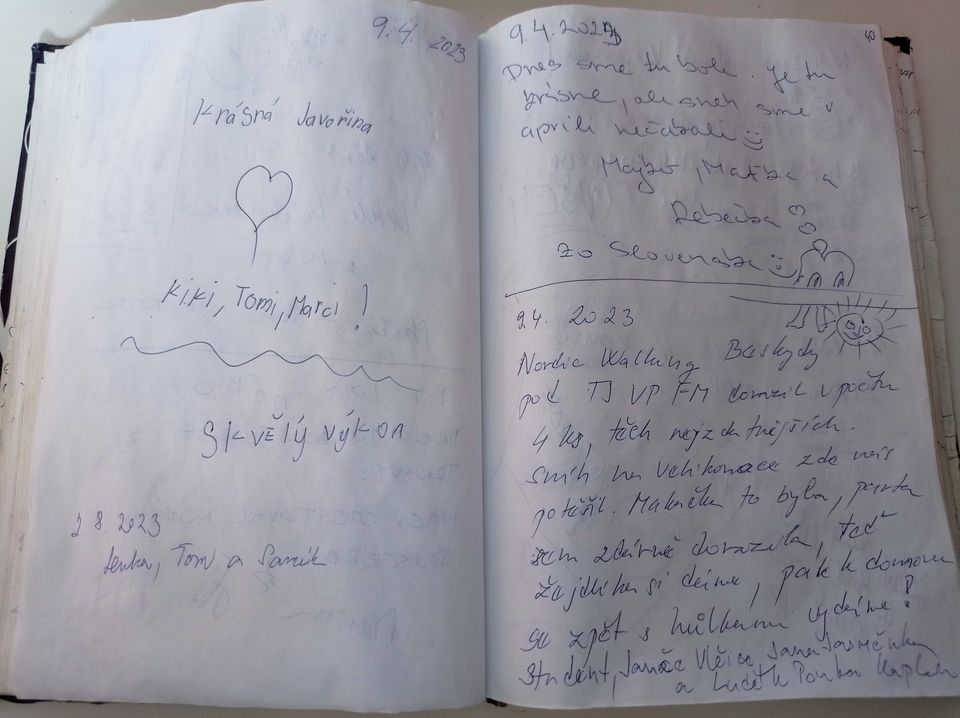 9.4. 2023
Krásná Javořina
Kiki, Tomi, Marci!
SKVĚLÝ VÝKON
2 8. 2023
Lenka, Tom a
9.4.2023
40
Dnes sme tu boli. Je tu
krásne, ale sneh sme v
aprili nečakali
a
Rebečka
zo Slovenska
9.4. 2023
Nordic Walking Beskydy
pod TJ VP FM dorazil v počtu
4 ks, těch nejzdatnějších.
Sníh na Velikonoce zde nás
potěšil. Makačka to byla, parta
sem zdárně dorazila, teď
žejdlíka si dáme, pak k domovu
se zpět s hůlkami vydáme!
Student, Jana
a Luděk